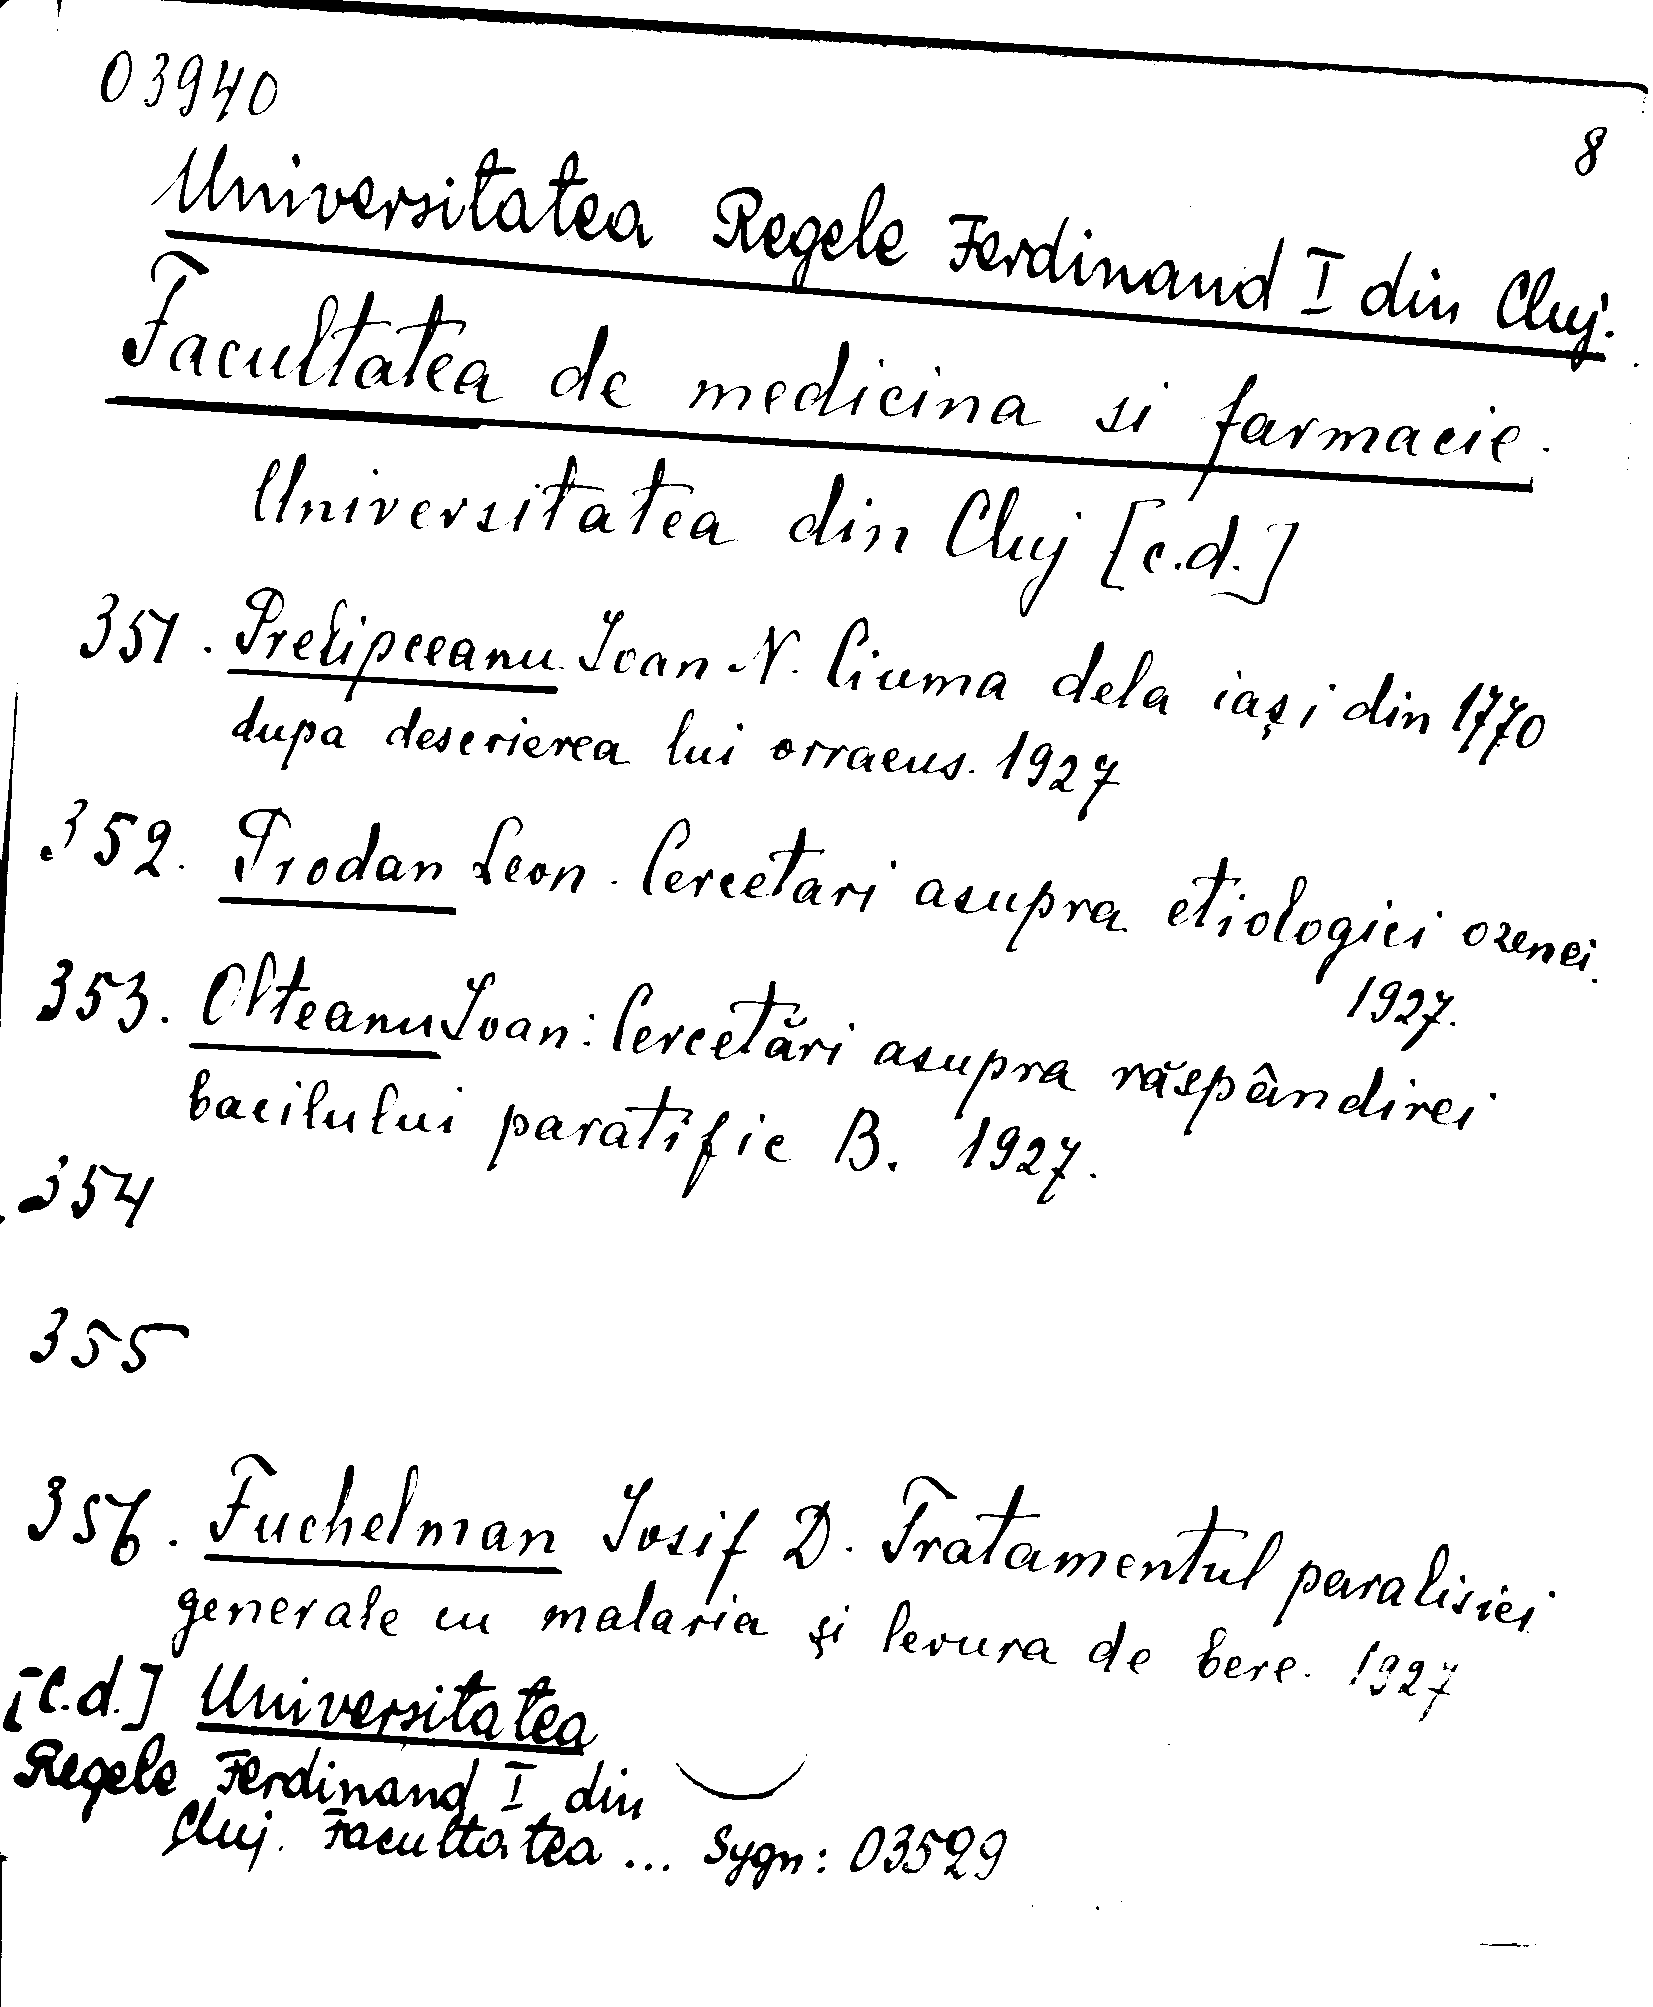 03940
8
Universitatea Regele Ferdinand I din Cluj.
Facultatea de medicina si farmacie.
Universitatea din Cluj [c.d.]
351. Prelipceanu Ioan N. Ciuma dela iași din 1770
dupa descrierea lui orraeus. 1927
352. Prodan Leon. Cercetari asupra etiologiei ozenei.
1927.
353. Olteanu Ioan: Cercetări asupra răspândirei
bacilului paratific B. 1927.
354
355
356. Fuchelman Iosif D. Tratamentul paralisiei
generale cu malaria și levura de bere. 1927
[c.d.] Universitatea
Regele Ferdinand I din
Cluj. Facultatea ... sygn: 03529